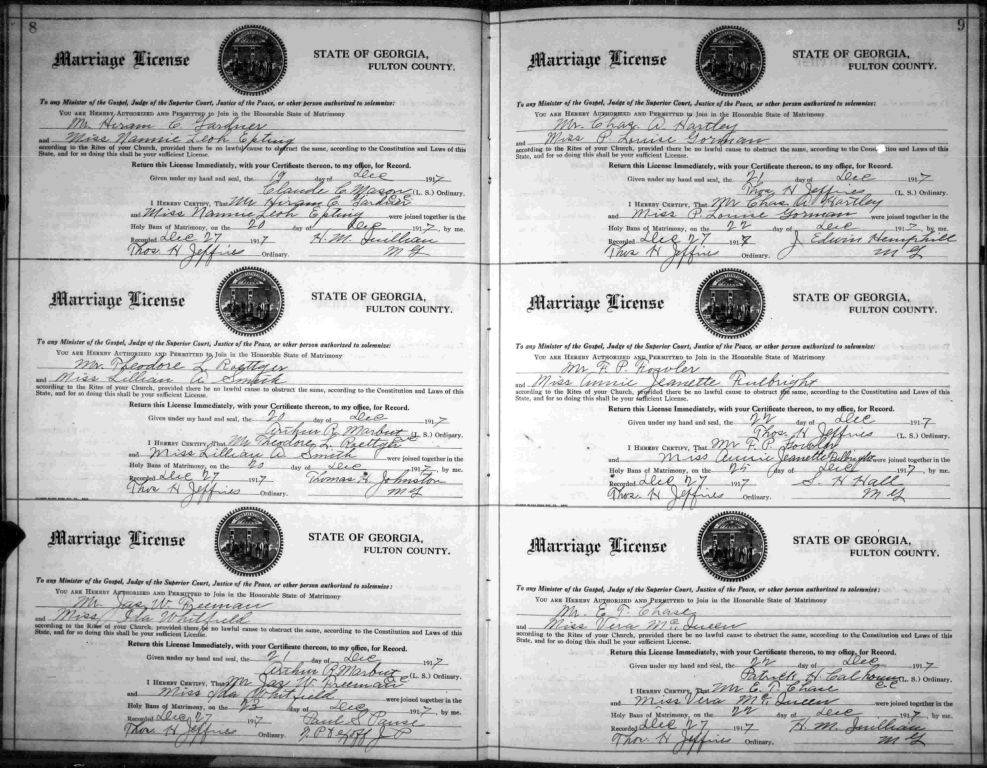 8
Marriage License
STATE OF GEORGIA,
FULTON COUNTY.
To any Minister of the Gospel, Judge of the Superior Court, Justice of the Peace, or other person authorized to solemnize:
YOU ARE HEREBY AUTHORIZED AND PERMITTED to Join in the Honorable State of Matrimony
Mr. Hiram C. Gardner
and Miss Nannie Leoh Epting
according to the Rites of your Church, provided there be no lawful cause to obstruct the same, according to the Constitution and Laws of this
State, and for so doing this shall be your sufficient License.
Return this License Immediately, with your Certificate thereon, to my office, for Record.
Given under my hand and seal, the 19 day of Dec 1917
Claude C. Mason (L. S.) Ordinary.
I HEREBY CERTIFY, That Mr Hiram C. Gardner
and Miss Nannie Leoh Epting were joined together in the
Holy Bans of Matrimony, on the 20 day of Dec 1917, by me.
Recorded Dec 27 1917 H. M. Quillian
Thos. H Jeffries Ordinary. M G
Marriage License
STATE OF GEORGIA,
FULTON COUNTY.
To any Minister of the Gospel, Judge of the Superior Court, Justice of the Peace, or other person authorized to solemnize:
YOU ARE HEREBY AUTHORIZED AND PERMITTED to Join in the Honorable State of Matrimony
Mr. Theodore L. Roettger
and Miss Lillian A. Smith
according to the Rites of your Church, provided there be no lawful cause to obstruct the same, according to the Constitution and Laws of this
State, and for so doing this shall be your sufficient License.
Return this License Immediately, with your Certificate thereon, to my office, for Record.
Given under my hand and seal, the 20 day of Dec 1917
Arthur R. Marbut (L. S.) Ordinary.
I HEREBY CERTIFY, That Mr Theodore L. Roettger
and Miss Lillian A. Smith were joined together in the
Holy Bans of Matrimony, on the 20 day of Dec 1917, by me.
Recorded Dec 27 1917 Thomas H. Johnston
Thos H Jeffries Ordinary. M G
Marriage License
STATE OF GEORGIA,
FULTON COUNTY.
To any Minister of the Gospel, Judge of the Superior Court, Justice of the Peace, or other person authorized to solemnize:
YOU ARE HEREBY AUTHORIZED AND PERMITTED to Join in the Honorable State of Matrimony
Mr. Jas W. Freeman
and Miss Ida Whitfield
according to the Rites of your Church, provided there be no lawful cause to obstruct the same, according to the Constitution and Laws of this
State, and for so doing this shall be your sufficient License.
Return this License Immediately, with your Certificate thereon, to my office, for Record.
Given under my hand and seal, the 21 day of Dec 1917
Arthur R. Marbut C C (L. S.) Ordinary.
I HEREBY CERTIFY, That Mr Jas W. Freeman
and Miss Ida Whitfield were joined together in the
Holy Bans of Matrimony, on the 23 day of Dec 1917, by me.
Recorded Dec 27 1917 Paul S.
Thos H Jeffries Ordinary. J P
9
Marriage License
STATE OF GEORGIA,
FULTON COUNTY.
To any Minister of the Gospel, Judge of the Superior Court, Justice of the Peace, or other person authorized to solemnize:
YOU ARE HEREBY AUTHORIZED AND PERMITTED to Join in the Honorable State of Matrimony
Mr. Chas. A. Hartley
and Miss P. Louise Gorman
according to the Rites of your Church, provided there be no lawful cause to obstruct the same, according to the Constitution and Laws of this
State, and for so doing this shall be your sufficient License.
Return this License Immediately, with your Certificate thereon, to my office, for Record.
Given under my hand and seal, the 21 day of Dec 1917
Thos. H Jeffries (L. S.) Ordinary.
I HEREBY CERTIFY, That Mr Chas. A. Hartley
and Miss P. Louise Gorman were joined together in the
Holy Bans of Matrimony, on the 22 day of Dec 1917, by me.
Recorded Dec 27 1917 J Edwin Hemphill
Thos H Jeffries Ordinary. M G
Marriage License
STATE OF GEORGIA,
FULTON COUNTY.
To any Minister of the Gospel, Judge of the Superior Court, Justice of the Peace, or other person authorized to solemnize:
YOU ARE HEREBY AUTHORIZED AND PERMITTED to Join in the Honorable State of Matrimony
Mr F. P.
and Miss Annie Jeanette Fulbright
according to the Rites of your Church, provided there be no lawful cause to obstruct the same, according to the Constitution and Laws of this
State, and for so doing this shall be your sufficient License.
Return this License Immediately, with your Certificate thereon, to my office, for Record.
Given under my hand and seal, the 22 day of Dec 1917
Thos. H Jeffries (L. S.) Ordinary.
I HEREBY CERTIFY, That Mr F. P.
and Miss Annie Jeanette Fulbright were joined together in the
Holy Bans of Matrimony, on the 25 day of Dec 1917, by me.
Recorded Dec 27 1917 S. H Hall
Thos. H Jeffries Ordinary. M G
Marriage License
STATE OF GEORGIA,
FULTON COUNTY.
To any Minister of the Gospel, Judge of the Superior Court, Justice of the Peace, or other person authorized to solemnize:
YOU ARE HEREBY AUTHORIZED AND PERMITTED to Join in the Honorable State of Matrimony
Mr. E. T. Chase
and Miss Vera McQueen
according to the Rites of your Church, provided there be no lawful cause to obstruct the same, according to the Constitution and Laws of this
State, and for so doing this shall be your sufficient License.
Return this License Immediately, with your Certificate thereon, to my office, for Record.
Given under my hand and seal, the 22 day of Dec 1917
Patrick H Calhoun C C (L. S.) Ordinary.
I HEREBY CERTIFY, That Mr E. T. Chase
and Miss Vera McQueen were joined together in the
Holy Bans of Matrimony, on the 22 day of Dec 1917, by me.
Recorded Dec 27 1917 H. M. Quillian
Thos. H Jeffries Ordinary. M G